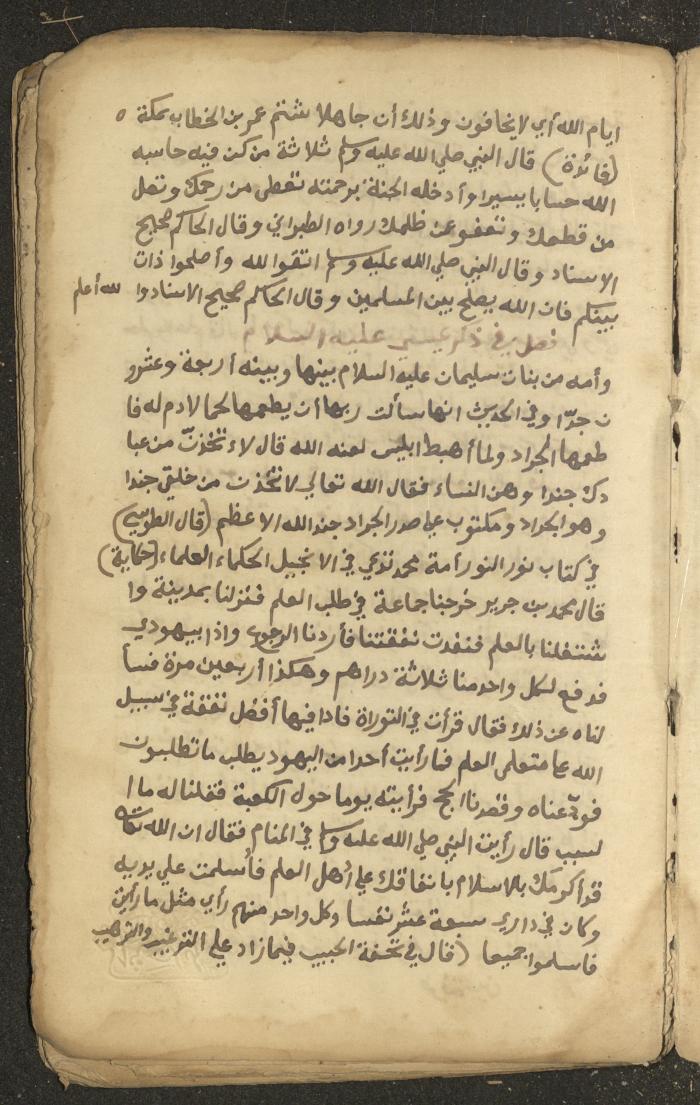 ايام الله أي لا يخافون وذلك أن جاهلا شتم عمر بن الخطاب بمكة ه
(فائدة) قال النبي صلي الله عليه وسلم ثلاثة من كن فيه حاسبه
الله حسابا يسيرا وأدخله الجنة برحمته تعطي من رحمك وتصل
من قطعك وتعفو عن ظلمك رواه الطبراني وقال الحاكم صحيح
الاسناد وقال النبي صلي الله عليه وسلم اتقوا الله وأصلحوا ذات
بينكم فان الله يصلح بين المسلمين وقال الحاكم صحيح الاسناد وا لله أعلم
فصل في ذكر عيسي عليه السلام
وأمه من بنات سليمان عليه السلام بينها وبينه أربعة وعشرو
ن جدّا وفي الحديث انها سألت ربها أن يطعمها لحما لا دم له فا
طعمها الجراد ولما أهبط ابليس لعنه الله قال لاءتخذنّ من عبا
دك جندا وهن النساء فقال الله تعالي لاتخذن من خلقي جندا
وهو الجراد ومكتوب علي صدر الجراد جند الله الاعظم (قال الطوسي)
في كتاب نور النور أمة محمد في الانجيل الحكماء العلماء (حكاية)
قال محمد بن جرير خرجنا جماعة في طلب العلم فنزلنا بمدينة وا
شتغلنا بالعلم فنفدت نفقتنا فأردنا الرجوع واذا بيهودي
قد دفع لكل واحد منا ثلاثة دراهم وهكذا أربعين مرة فسأ
لناه عن ذلك فقال قرأت في التوراة فاذا فيها أفضل نفقة في سبيل
الله علي متعلمي العلم فما رأيت أحدا من اليهود يطلب ما تطلبون
فودّعناه وقصدنا الحج فرأيته يوما حول الكعبة فقلنا له ما ا
لسبب قال رأيت النبي صلي الله عليه وسلم في المنام فقال ان الله تعالي
قد أكرمك بالاسلام بانفاقك علي أهل العلم فأسلمت علي يديه
وكان في داري سبعة عشر نفسا وكل واحد منهم رأي مثل ما رأيت
فاسلموا جميعا (قال في تحفة الحبيب فيما زاد علي الترغيب والترهيب